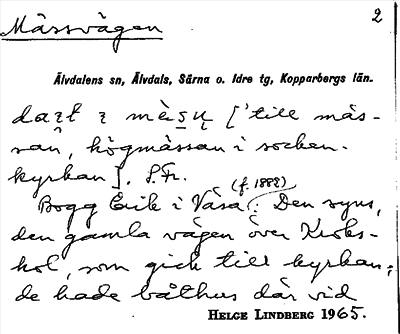 Mässvägen
2
Älvdalens sn, Älvdals, Särna o. Idre tg, Kopparbergs län.
['till mäs-
san, högmässan i socken-
kyrkan]. S.Fr.
(f. 1882)
Bogg Erik i Våsa: Den syns,
den gamla vägen över Kroks-
hol, som gick till kyrkan;
de hade båthus där vid
HELGE LINDBERG 1965.